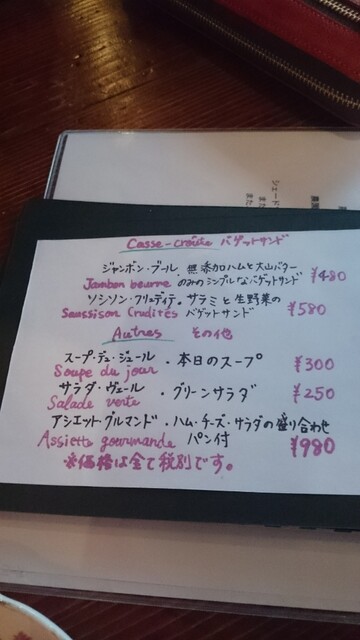 Casse-croûte バゲットサンド
ジャンボン・ブール. 無添加ハムと大山バター
Jambon beurre のみのシンプルなバゲットサンド ¥480
ソシソン・クリュディテ. サラミと生野菜の
Saussison Crudités バゲットサンド ¥580
Autres その他
スープ・デュ・ジュール ・本日のスープ ¥300
Soupe du jour
サラダ・ヴェール ・グリーンサラダ ¥250
Salade verte
アシエット・グルマンド ・ハム・チーズ・サラダの盛り合わせ
Assiette gourmande パン付 ¥980
※価格は全て税別です。